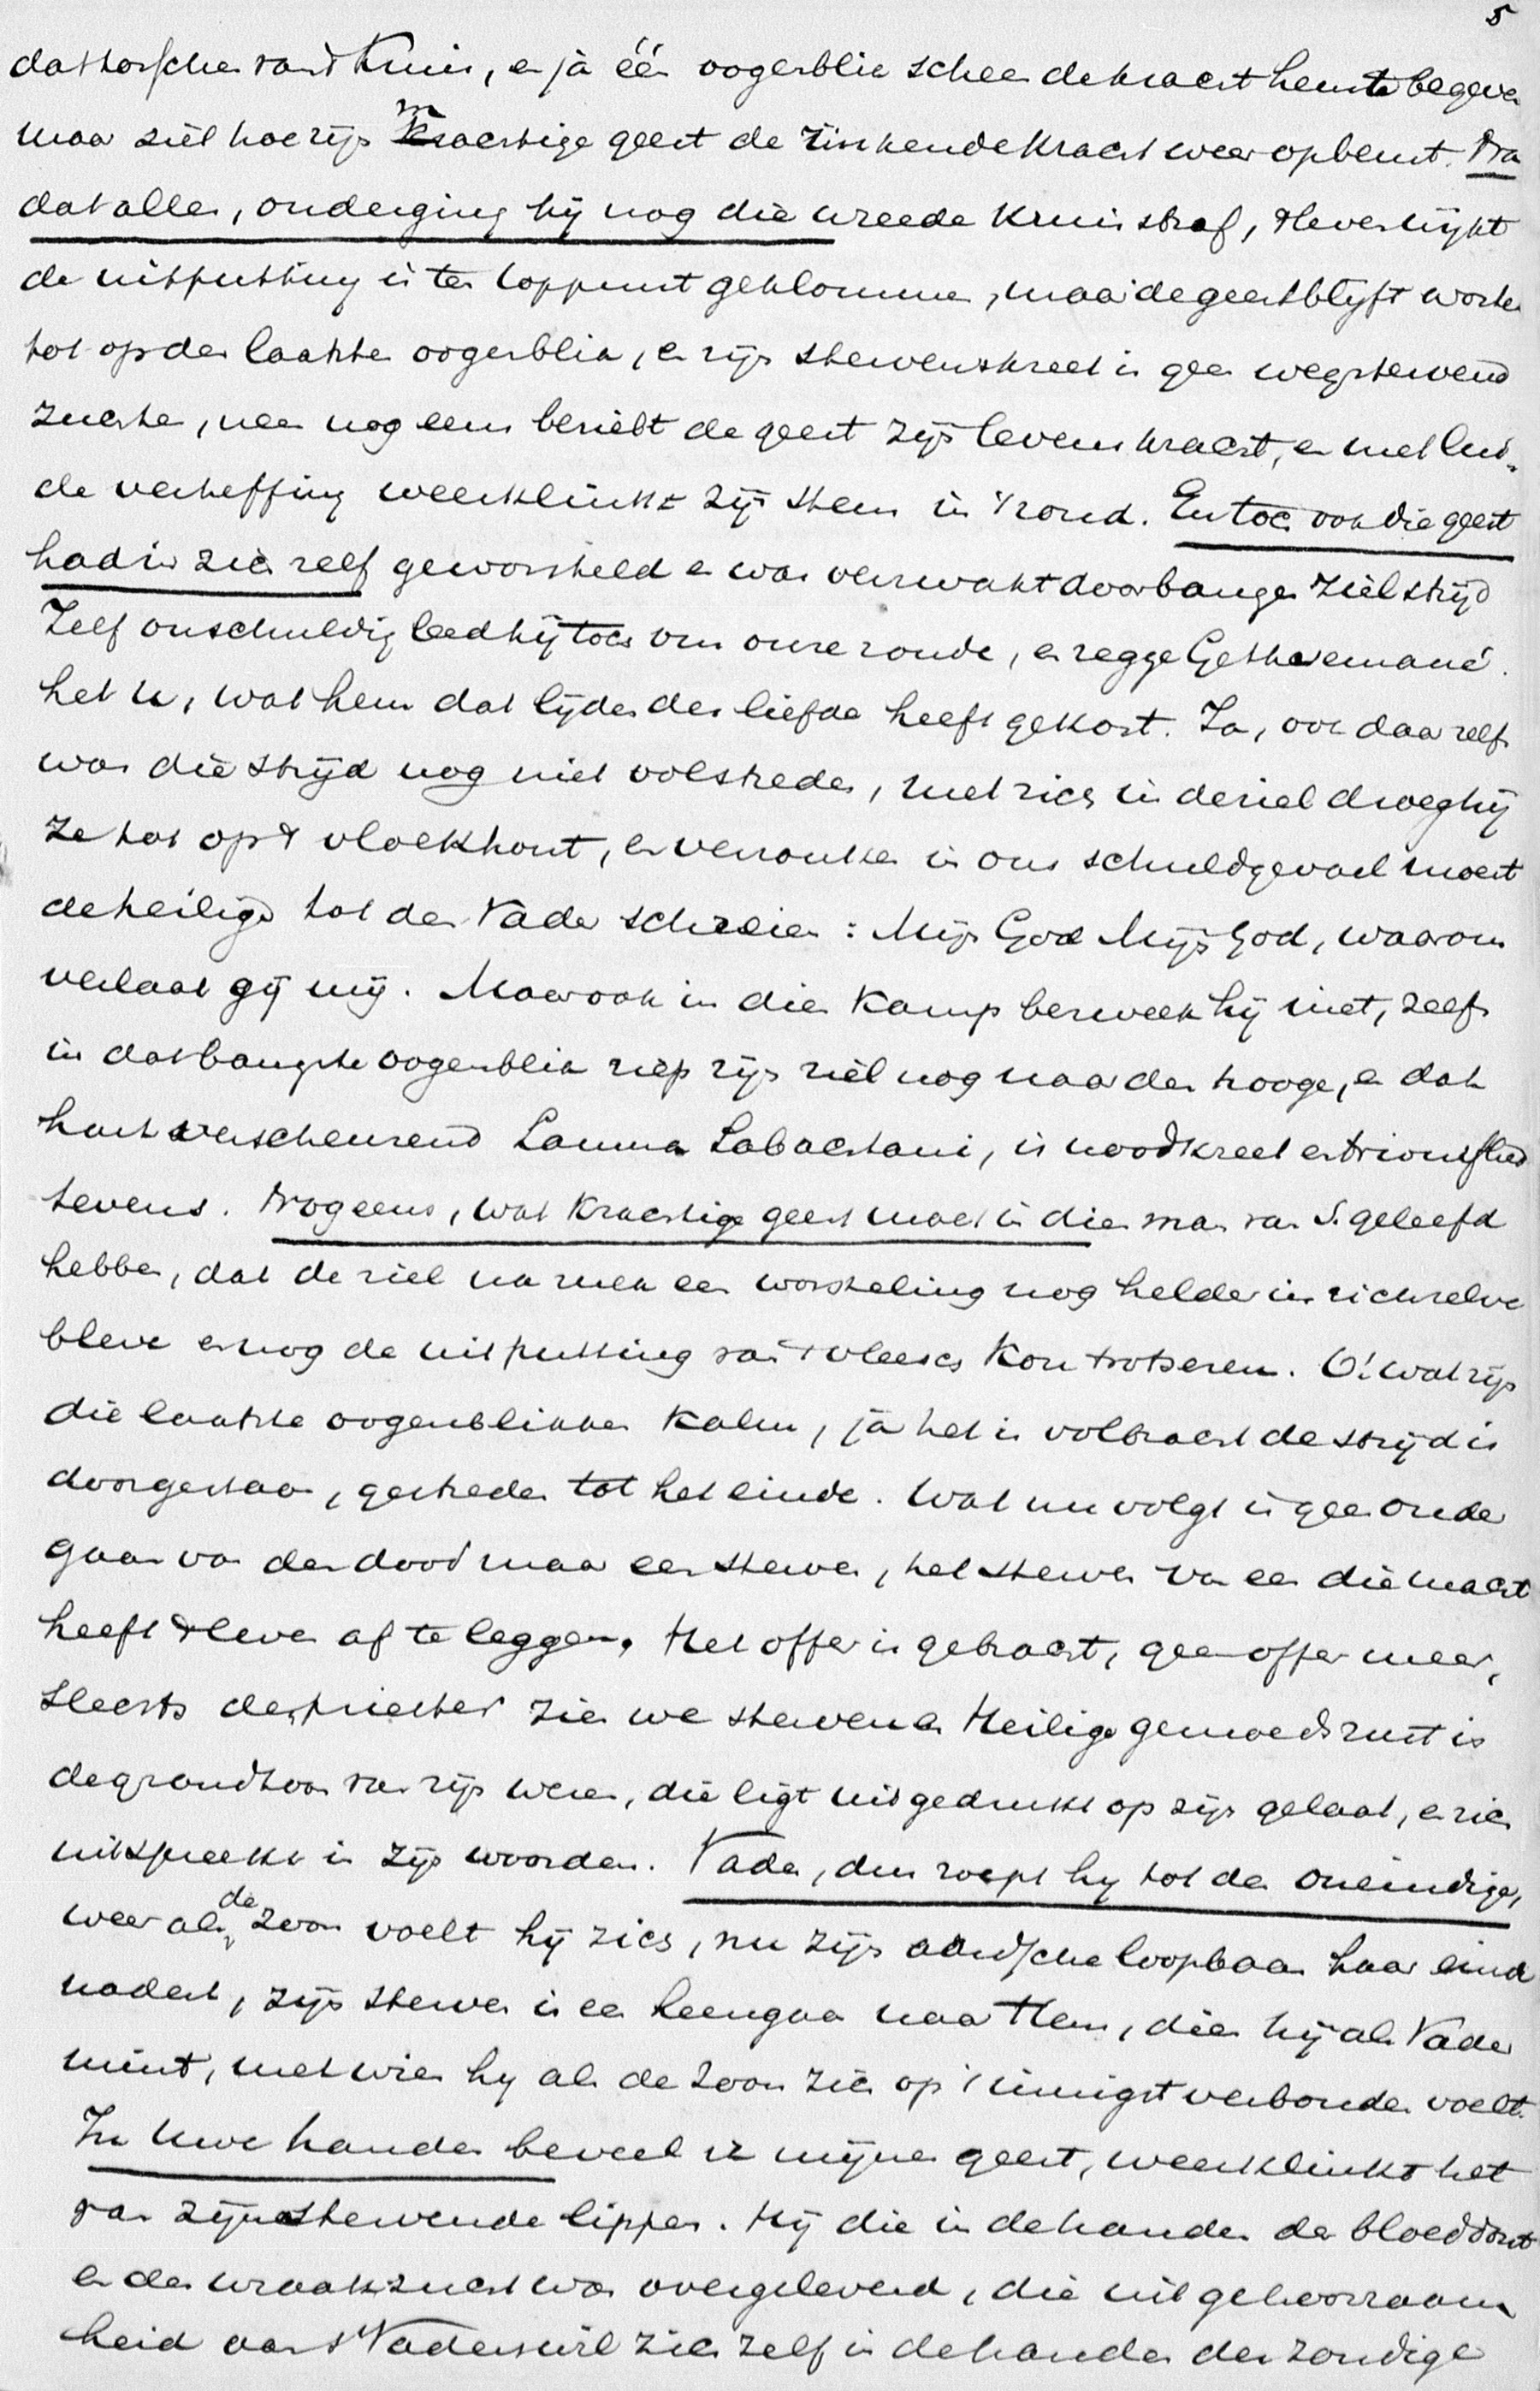 5
dat torschen van 't Kruis, en ja één oogenblik scheen de kracht hem te begeven
maar ziet hoe zijn machtige geest de zinkende kracht weer opbeurt. Na
dat alles, onderging hij nog die wreede Kruisstraf, 't leven wijkt
de uitputting is ten toppunt geklommen, maar de geest blijft worstelen
tot op den laatste oogenblik, en zijn stervenskreet is geen wegstervend
zuchten, neen nog eens bezielt de geest zijn levenskracht, en met lui-
de verheffing weerklinkt zijn stem in 't rond. En toch ook die geest
had in zich zelf geworsteld en was verzwakt door bangen zielstrijd
Zelf onschuldig leed hij toch om onze zonde, en zegge Gethsemané
het u, wat hem dat lijden der liefde heeft gekost. Ja, ook daar zelfs
was die strijd nog niet volstreden, met zich in de ziel droeg hij
ze tot op 't vloekhout, en verzonken in ons schuldgevoel moest
de heilige tot den Vader schreien: Mijn God Mijn God, waarom
verlaat gij mij. Maar ook in dien Kamp bezweek hij niet, zelfs
in dat bangste oogenblik riep zijn ziel nog naar den hooge, en dat
hartverscheurend Lamma Sabachtani, is noodkreet en triomflied
tevens. Nog eens, wat Krachtige geest moet in dien man van S. geleefd
hebben, dat de ziel na zulk een worsteling nog helder in zichzelve
bleve en nog de uitputting van 't vleesch Kon trotseren. O! wat zijn
die laatste oogenblikken Kalm, ja het is volbracht de strijd is
doorgestaan, gestreden tot het einde. Wat nu volgt is geen onder
gaan van den dood maar een sterven, het sterven van een die macht
heeft 't leven af te leggen. Het offer is gebracht, geen offer meer,
slechts den priester zien we sterven en Heilige gemoedsrust is
de grondtoon van zijn wezen, die ligt uitgedrukt op zijn gelaat, en zich
uitspreekt in zijn woorden. Vader, dus roept hij tot den oneindige,
weer als de Zoon voelt hij zich, nu zijn aardsche loopbaan haar eind
nadert, zijn sterven is een heengaan naar Hem, dien hij als Vader
mint, met wien hij als de Zoon zich op 't innigst verbonden voelt.
In Uwe handen beveel ik mijnen geest, weerklinkt het
van zijne stervende lippen. Hij die in de handen der bloeddorst
en der wraakzucht was overgeleverd, die uit gehoorzaam
heid aan 's Vaderswil zich zelf in de handen der zondige